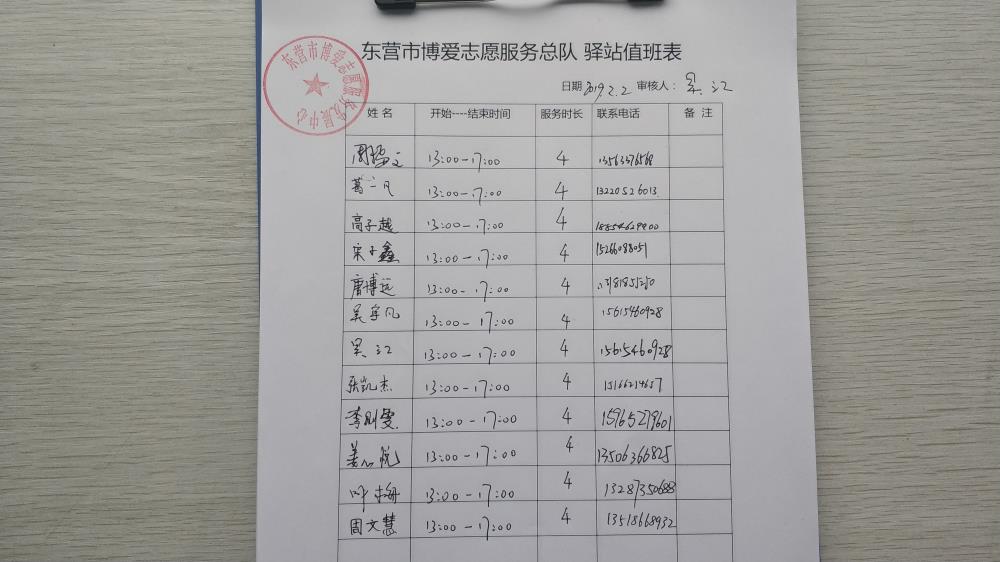 东营市博爱志愿服务总队 驿站值班表
东营市博爱志愿服务发展中心
日期 2019.2.2 审核人： 吴江
姓名 开始----结束时间 服务时长 联系电话 备注
周 13:00-17:00 4
葛一凡 13:00-17:00 4 13220526013
高子越 13:00-17:00 4 18854629900
宋子鑫 13:00-17:00 4 15266088051
唐博远 13:00-17:00 4
吴宇凡 13:00-17:00 4 15615460928
吴江 13:00-17:00 4 15615460928
张凯杰 13:00-17:00 4 15166214657
李 雯 13:00-17:00 4 15965279601
姜心悦 13:00-17:00 4 13506366825
叶 13:00-17:00 4 13287350688
周文慧 13:00-17:00 4 13518668932